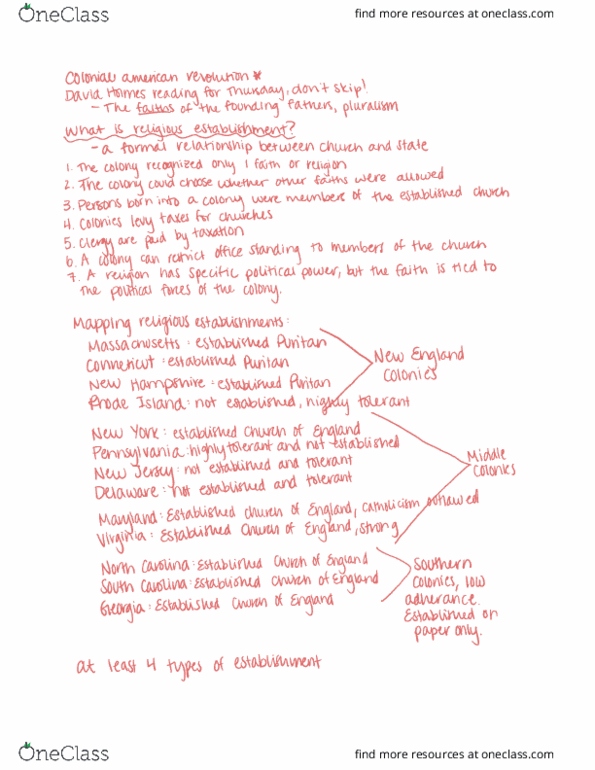 OneClass
find more resources at oneclass.com
Colonial american revolution *
David Holmes reading for Thursday, don't skip!
- The faiths of the founding fathers, pluralism
What is religious establishment?
- a formal relationship between church and state
1. The colony recognized only 1 faith or religion
2. The colony could choose whether other faiths were allowed
3. Persons born into a colony were members of the established church
4. Colonies levy taxes for churches
5. Clergy are paid by taxation
6. A colony can restrict office standing to members of the church
7. A religion has specific political power, but the faith is tied to
the political forces of the colony.
Mapping religious establishments:
Massachusetts: established Puritan
Connecticut: established Puritan
New Hampshire: established Puritan
Rhode Island: not established, highly tolerant
New England
Colonies
New York: established Church of England
Pennsylvania: highly tolerant and not established
New Jersey: not established and tolerant
Delaware: not established and tolerant
Maryland: Established Church of England, Catholicism outlawed
Virginia: Established Church of England, strong
Middle
Colonies
North Carolina: Established Church of England
South Carolina: Established Church of England
Georgia: Established Church of England
Southern
Colonies, low
adherance.
Established on
paper only.
at least 4 types of establishment
OneClass
find more resources at oneclass.com